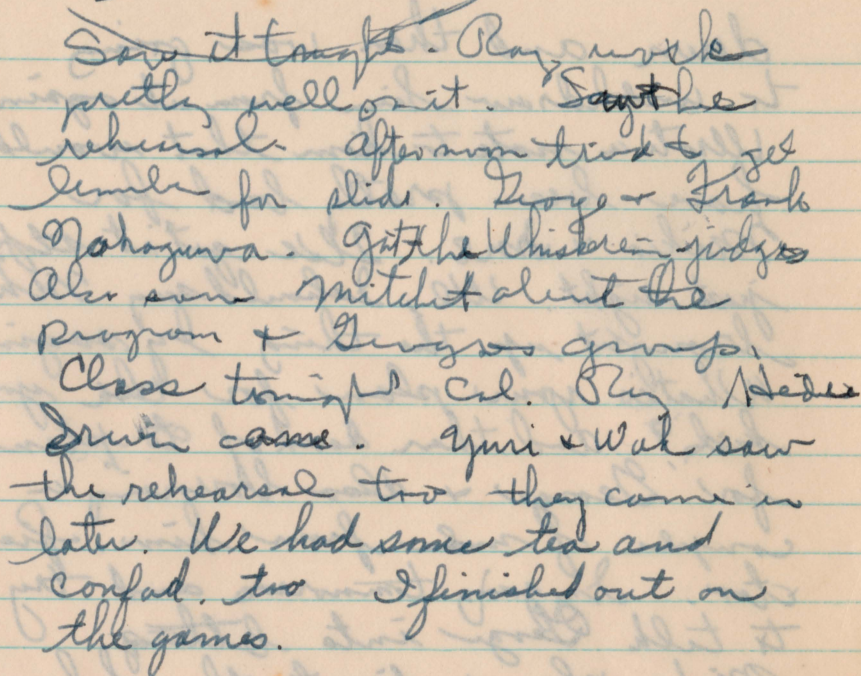 Saw it tonight. Ray works
pretty well on it. Saw the
rehearsal. Afternoon tried to get
lumber for slide. George + Frank
Nakagawa. Got the Whiskerin judges
Also saw Mitchit about the
program + Georges group.
Class tonight Cal. Ray
Irwin came. Yuri + Wak saw
the rehearsal too they came in
later. We had some tea and
confad. too I finished out on
the games.